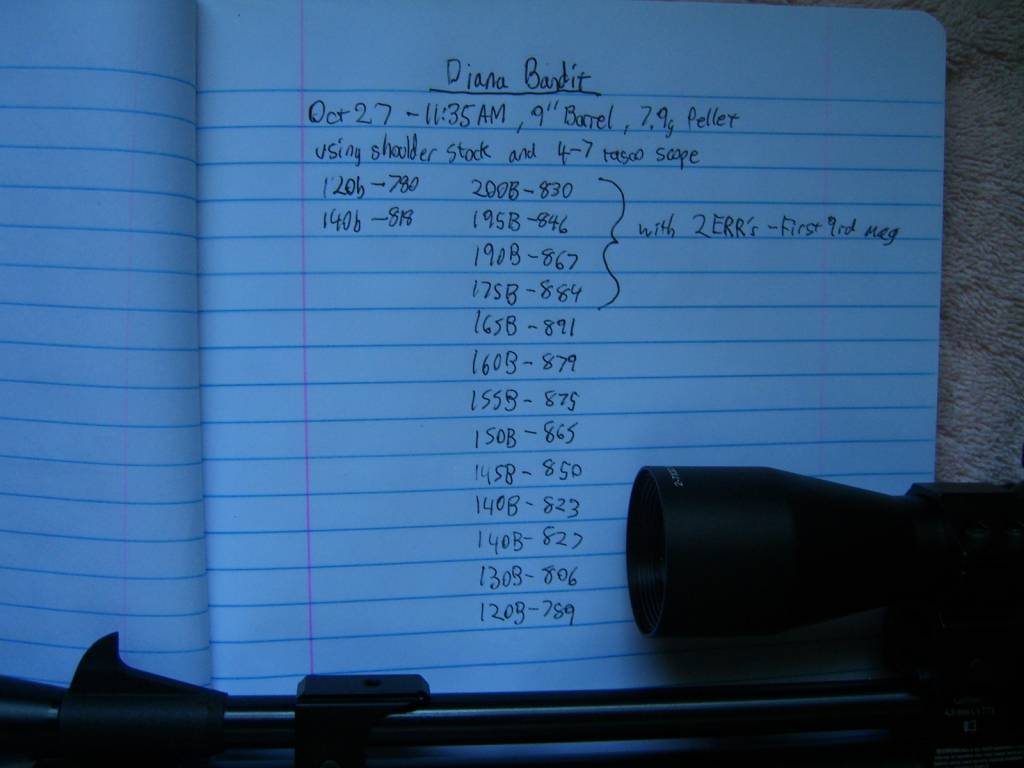 Diana Bandit
Oct 27 - 11:35 AM, 9" Barrel, 7.9g Pellet
using shoulder stock and 4-7 tasco scope
120b - 780 200B - 830
140b - 818 195B - 846 with 2 ERR's - First 9rd mag
190B - 867
175B - 884
165B - 891
160B - 879
155B - 875
150B - 865
145B - 850
140B - 823
140B - 827
130B - 806
120B - 789